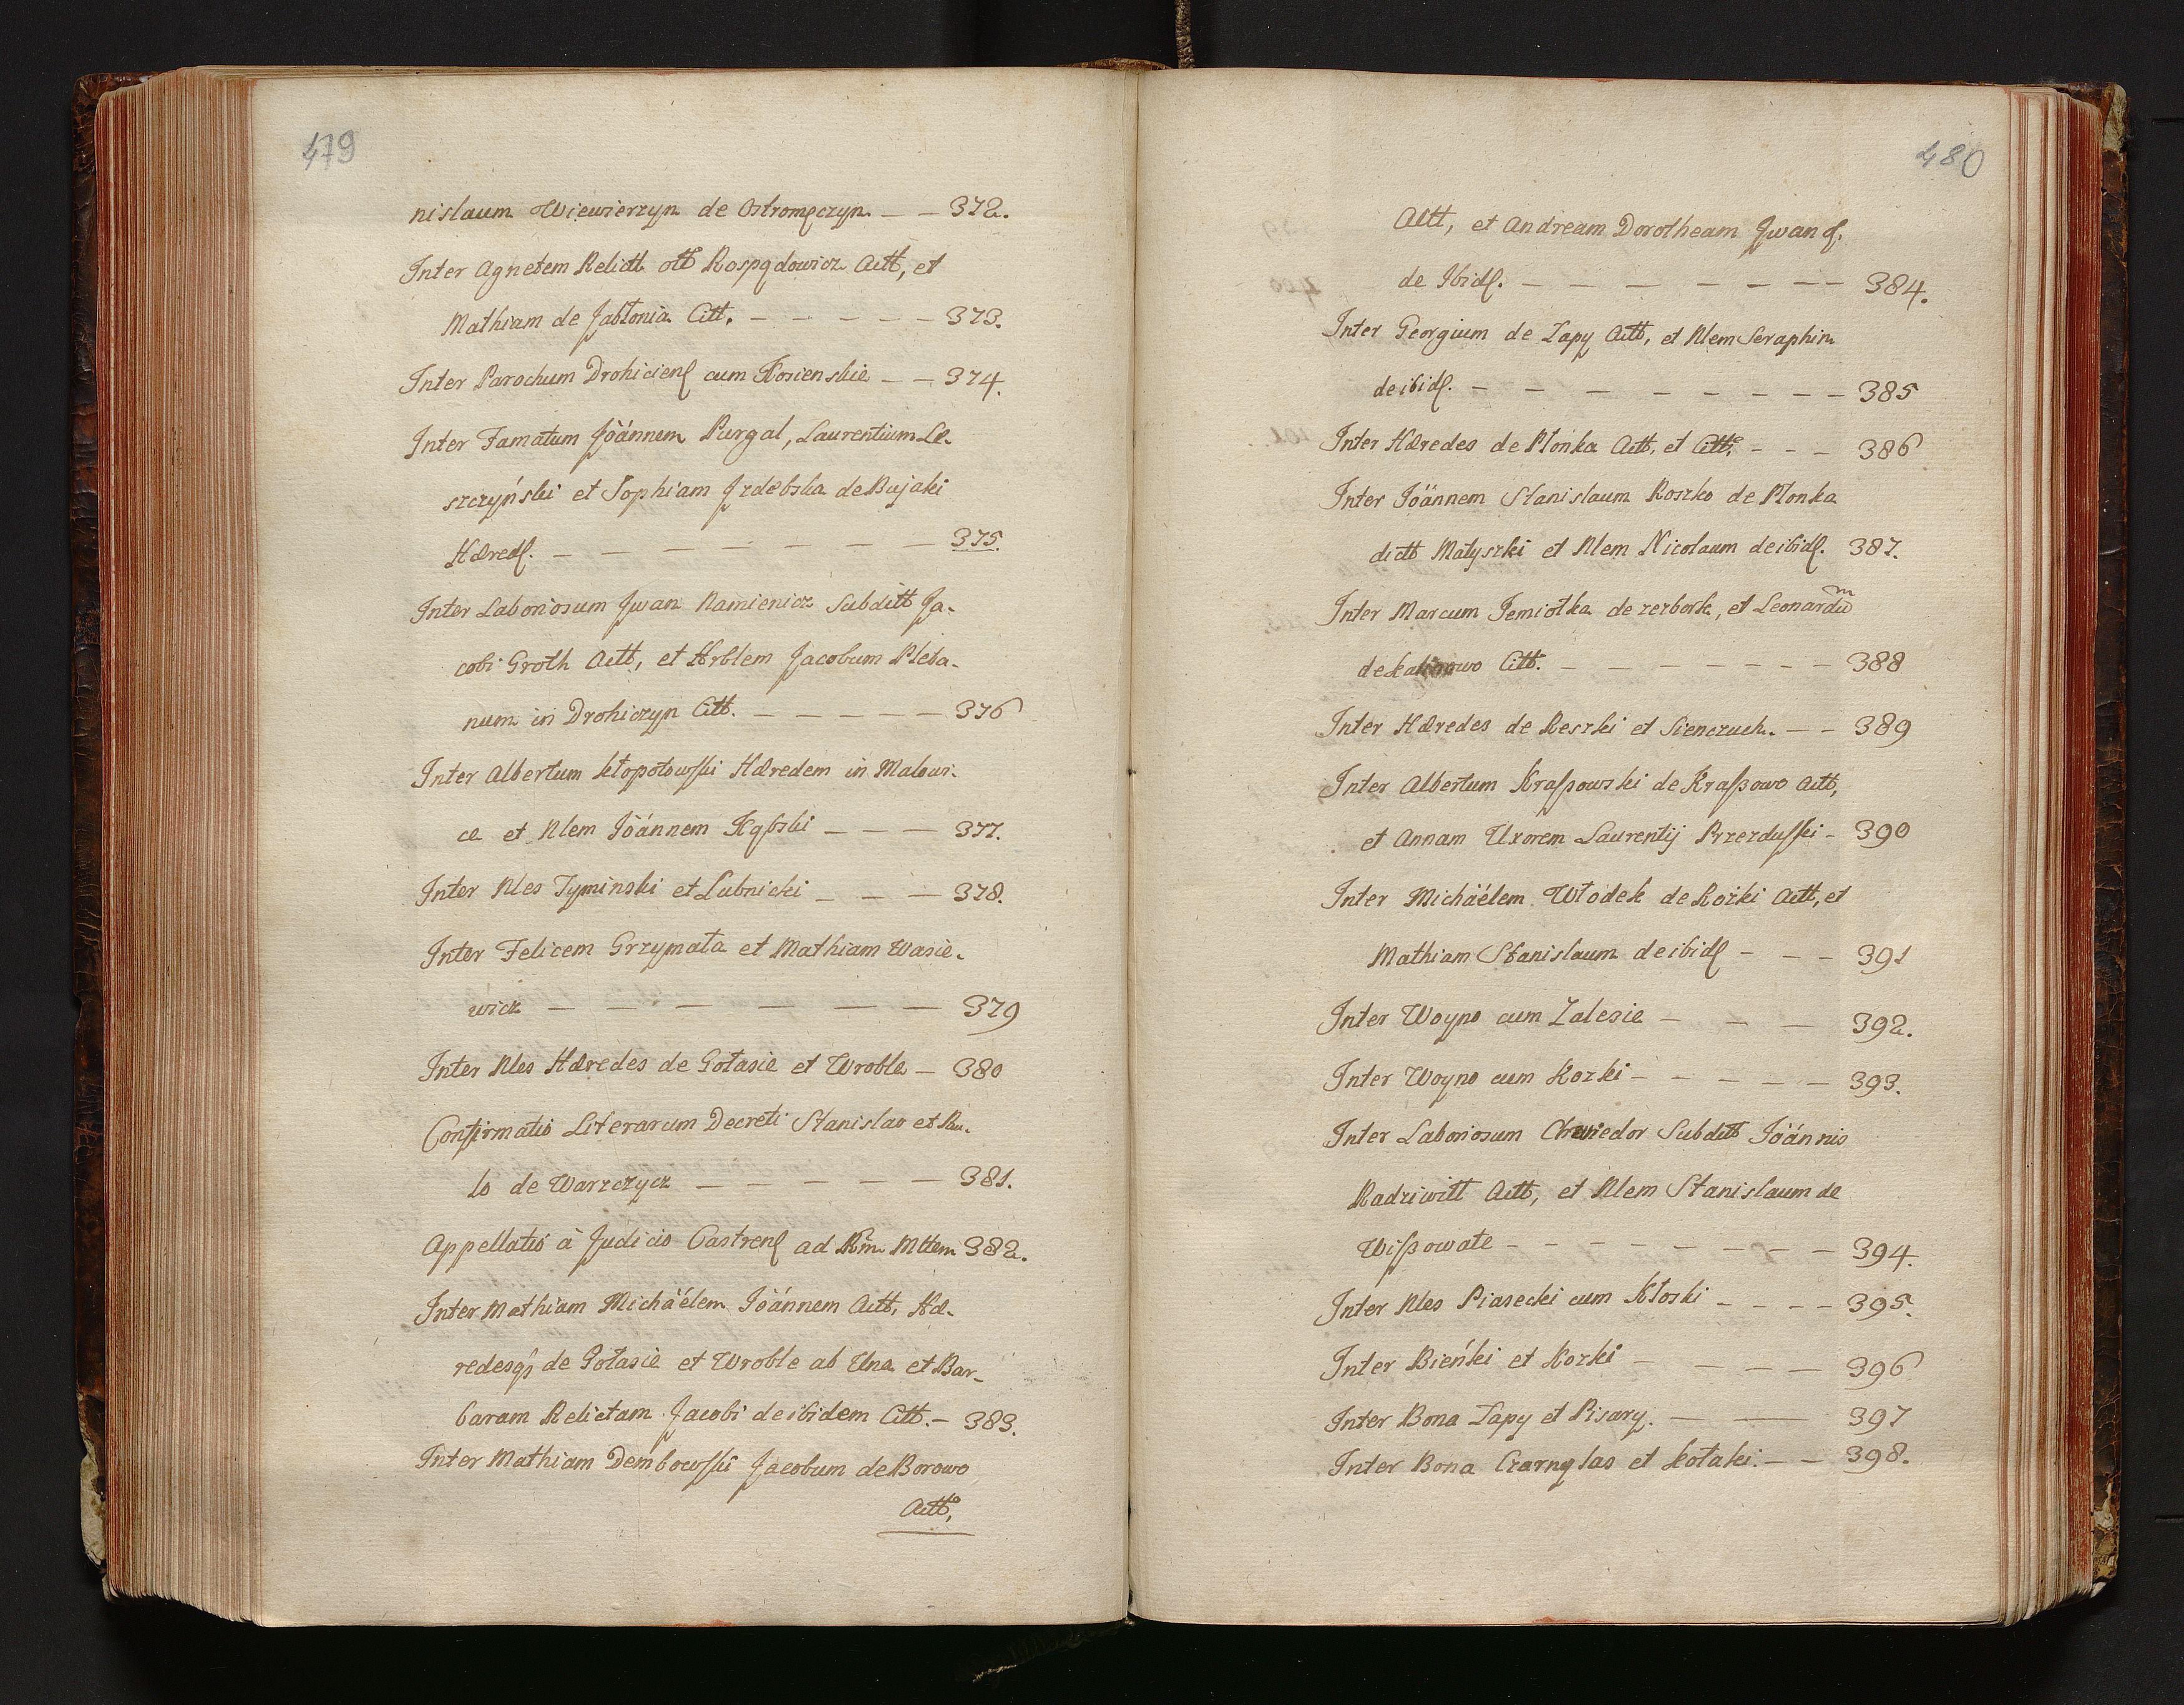 479
nislaum Wiewierzyn de Ostromęczyn — — 372.
Inter Agnetem Relictt ott Rospądowicz Actt, et
Mathiam de Jabłonia Citt. — — — — — 373.
Inter Parochum Drohiciens cum Kosienskie — — 374.
Inter Famatum Jöánnem Purgal, Laurentium Le-
szczyński et Sophiam Jzdebska de Bujaki
Hæreds. — — — — — — — 375.
Inter Laboriosum Jwan Namienicz Subditt Ja-
cobi Groth Actt, et Hrblem Jacobum Pleba-
num in Drohiczyn Citt. — — — — — 376
Inter Albertum kłopotowski Hæredem in Malewi-
ce et Nlem Jöánnem Kąbski — — — 377.
Inter Nles Tyminski et Lubnicki — — — 378.
Inter Felicem Grzymała et Mathiam Wasie-
wicz — — — — — — 379
Inter Nles Hæredes de Gołasie et Wroble — 380
Confirmatio Literarum Decreti Stanislao et Pau-
lo de Warzczycz — — — — — 381.
Appellatio à Judicio Castrens ad Rm Mttem 382.
Inter Mathiam Michäélem Jöánnem Actt, Hæ-
redesqs de Gołasie et Wroble ab Una et Bar-
baram Relictam Jacobi de ibidem Citt. — 383.
Inter Mathiam Dembowski Jacobum de Borowo
Actt,
480
Actt, et Andream Dorotheam Jwan s.
de Ibids. — — — — — — — 384.
Inter Georgium de Zapy Actt, et Nlem Seraphin
de ibids. — — — — — — — 385
Inter Hæredes de Płonka Actt, et Citt. — — — 386
Inter Jöännem Stanislaum Roszko de Płonka
dictt Matyszki et Nlem Nicolaum de ibids. 387.
Inter Marcum Jemiołka de zerbork, et Leonardum
de Citt. — — — — — — — 388
Inter Hæredes de Reszki et Sienczuch. — — 389
Inter Albertum Krassowski de Krassowo Actt,
et Annam Uxorem Laurentij Przezdusski — 390
Inter Michäélem Włodek de Rożki Actt, et
Mathiam Stanislaum de ibids — — — 391
Inter Woyno cum Zalesie — — — 392.
Inter Woyno cum Kozki — — — — — 393.
Inter Laboriosum Chwiedor Subditt Jöánnis
Radziwiłł Actt, et Nlem Stanislaum de
Wissowate — — — — — — — 394.
Inter Nles Piasecki cum Kłoski — — — — 395.
Inter Bieńki et Kozki — — — — 396
Inter Bona Zapy et Pisary. — — 397
Inter Bona Czarnglas et kołaki. — — 398.